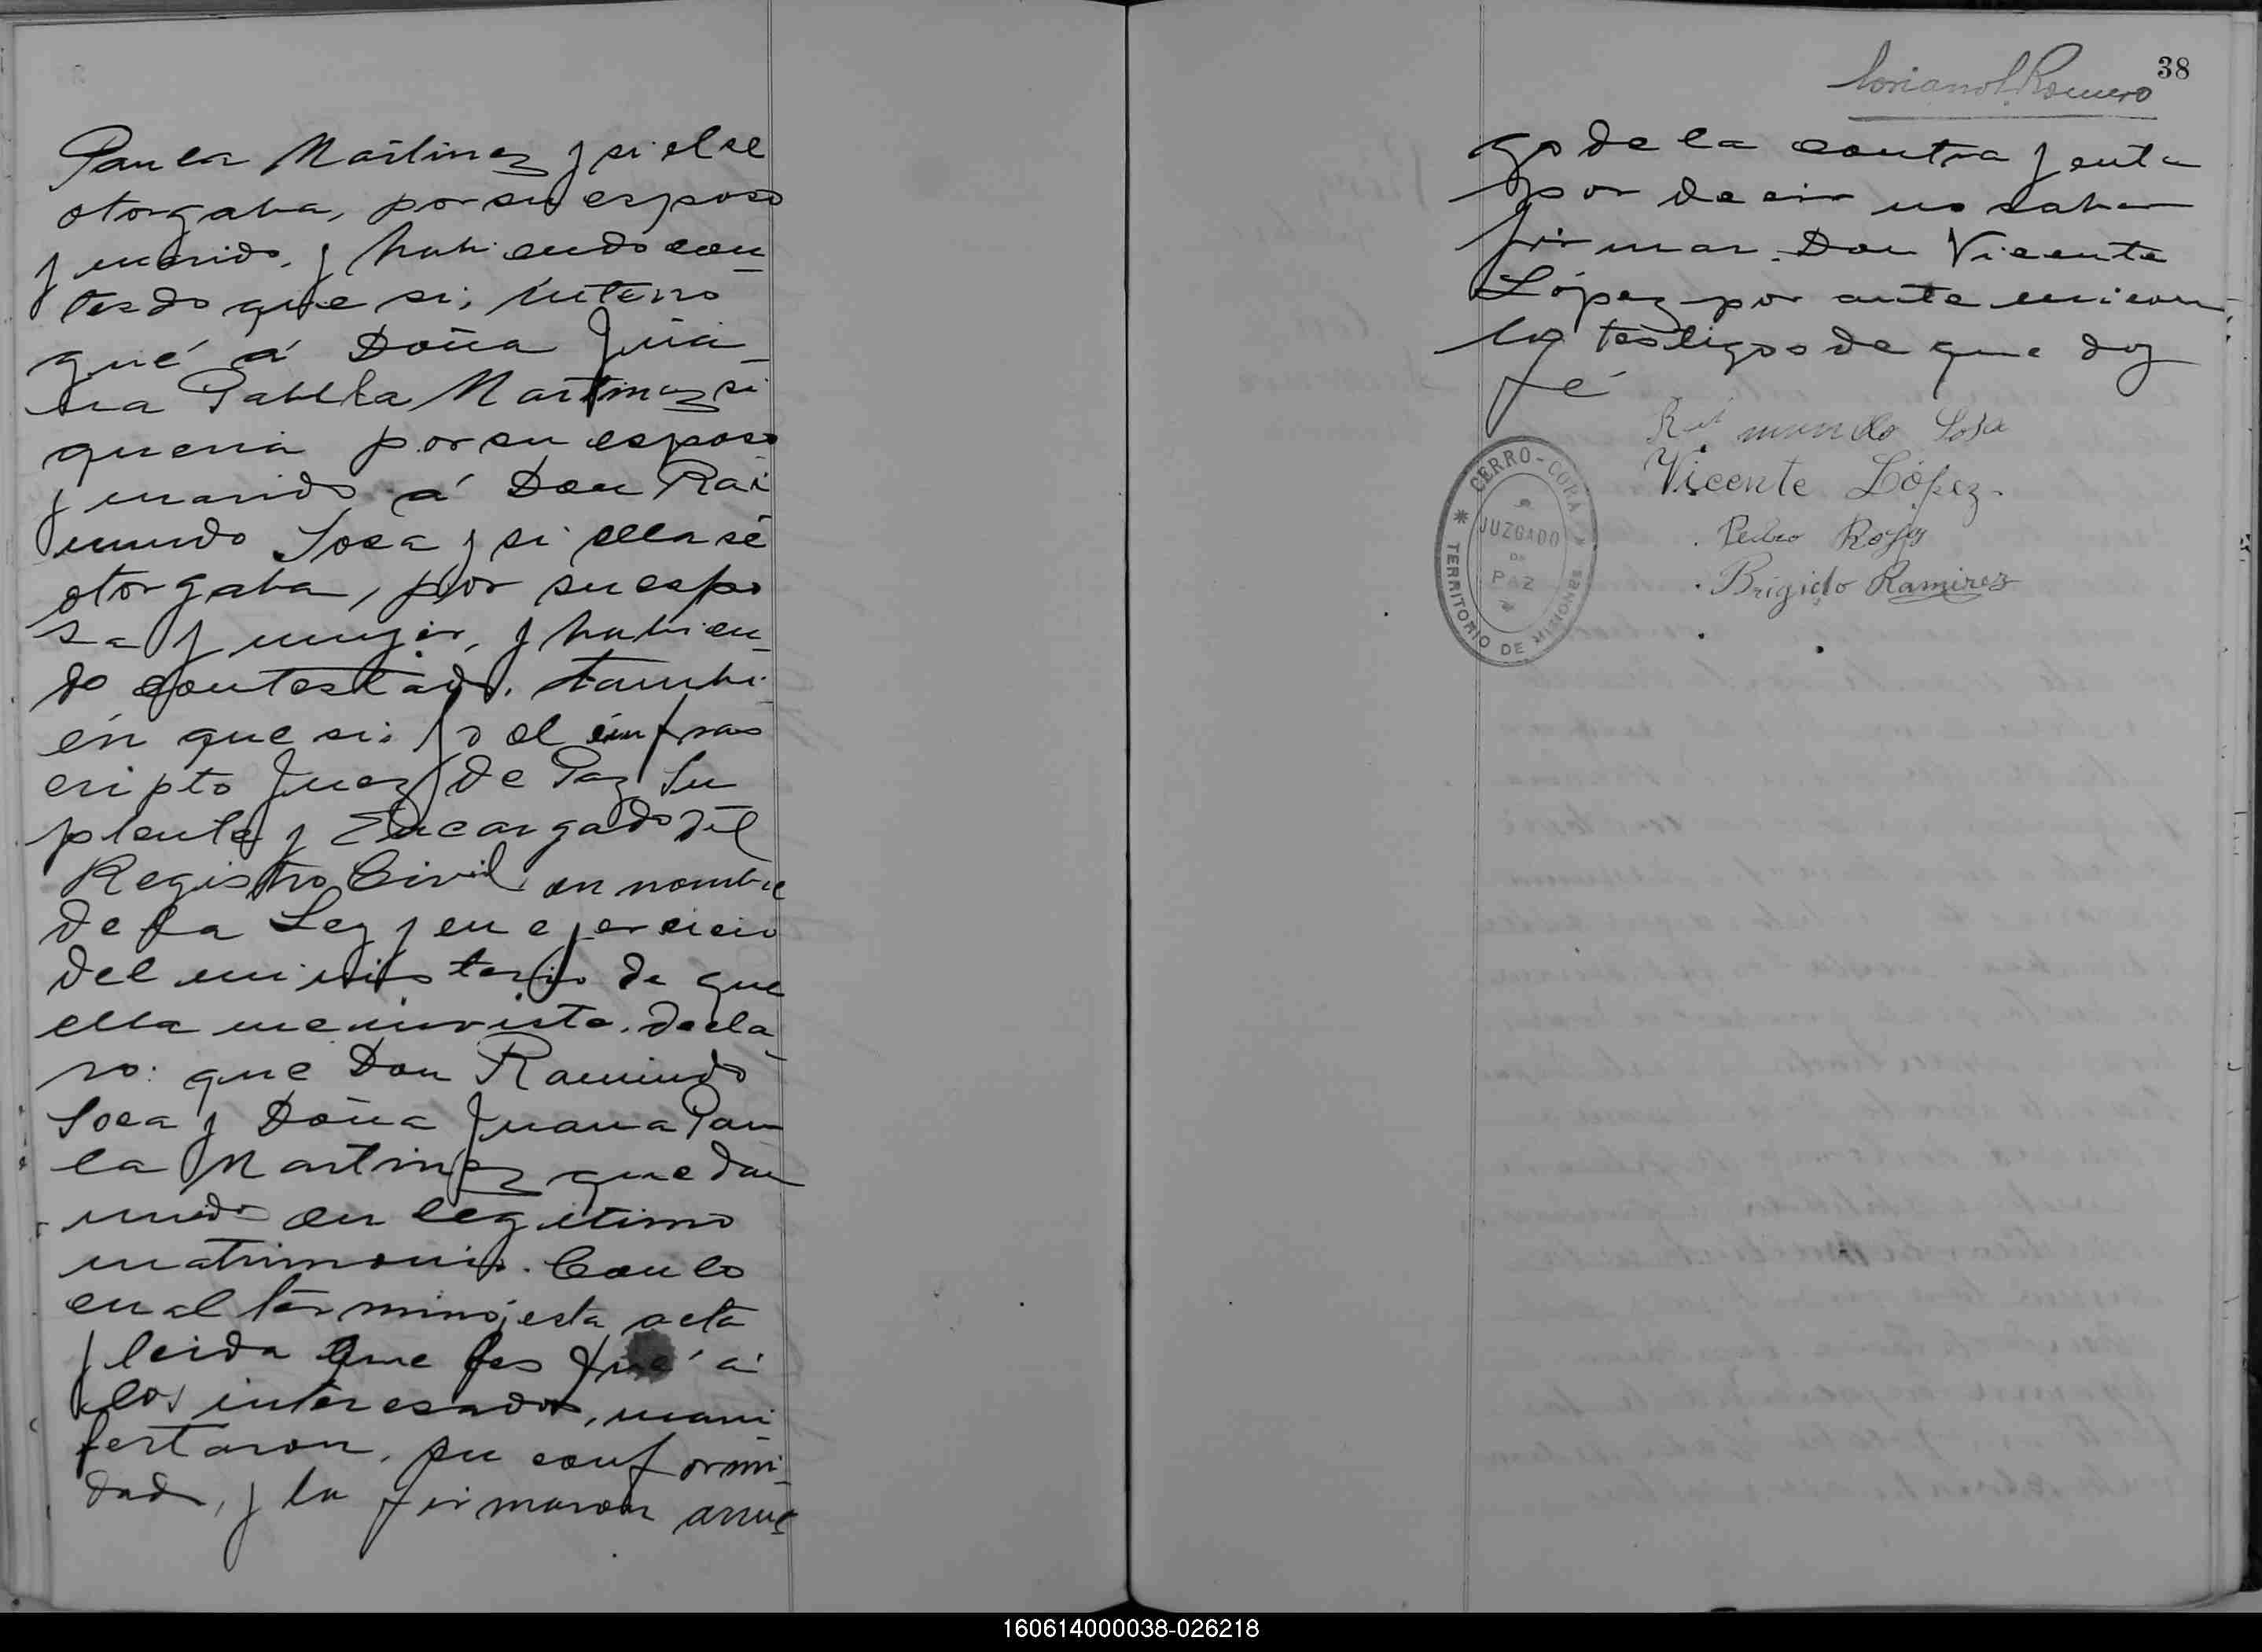 Paula Martinez y si el se
otorgaba, por su esposo
y marido, y habiendo con-
tesdo que si, interro
gué á Doña Jua-
na Pabula Martinez si
queria por su esposo
y marido á Don Rai
mundo Sosa y si ella se
otorgaba, por su espo
sa y mujer, y habien-
do contestado, tambi-
én que si; yo el infras
cripto Juez de Paz Su
plente y Encargado del
Registro Civil en nombre
de la Ley y en ejercicio
del ministerio de que
ella me inviste. decla-
ro: que Don Ramundo
Sosa y Doña Juana Pau
la Martinez quedan
unido en legitimo
matrimonio. Con lo
cual terminó esta acta
y leida que les fué á
los interesados, mani-
festaron, su conformi-
dad, y la firmaron arrue
38
Romero
go de la contra yenta
por decir no saber
firmar. Don Vicente
López por ante mi con
los testigos de que doy
fé
Raimundo Sosa
Vicente López.
Pedro Rojas
Brigido Ramirez
CERRO-CORA
JUZGADO
DE
PAZ
TERRITORIO DE MISIONES
160614000038-026218